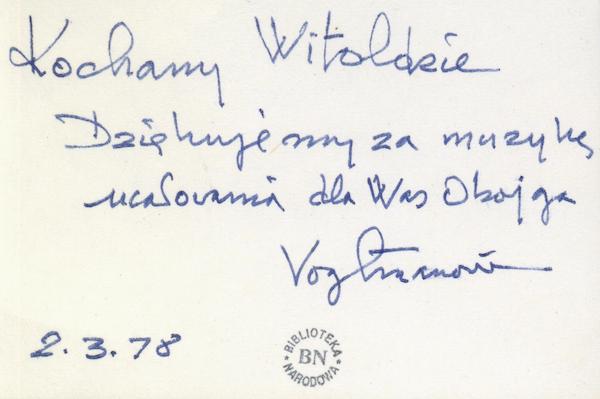 Kochany Witoldzie
Dziękujemy za muzykę
ucałowania dla Was Obojga
2.3.78
BIBLIOTEKA
BN
NARODOWA